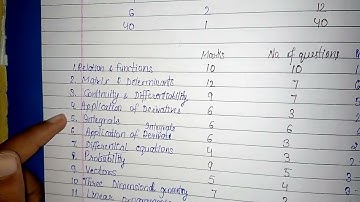 6 2 12
40 1 40
Marks No. of questions
1. Relation & functions 10 10
2. Matrix & Determinants 12 7 6
3. Continuity & Differentiability 9 7
4. Application of Derivatives 6 3 2
5. Integrals Integrals 6 6
6. Application of 6 3 2
7. Differential equations 4 3 2
8. Probability 9 5 3=
9. Vectors 5 4 2=
10. Three Dimensional geometry 7
11. Linear